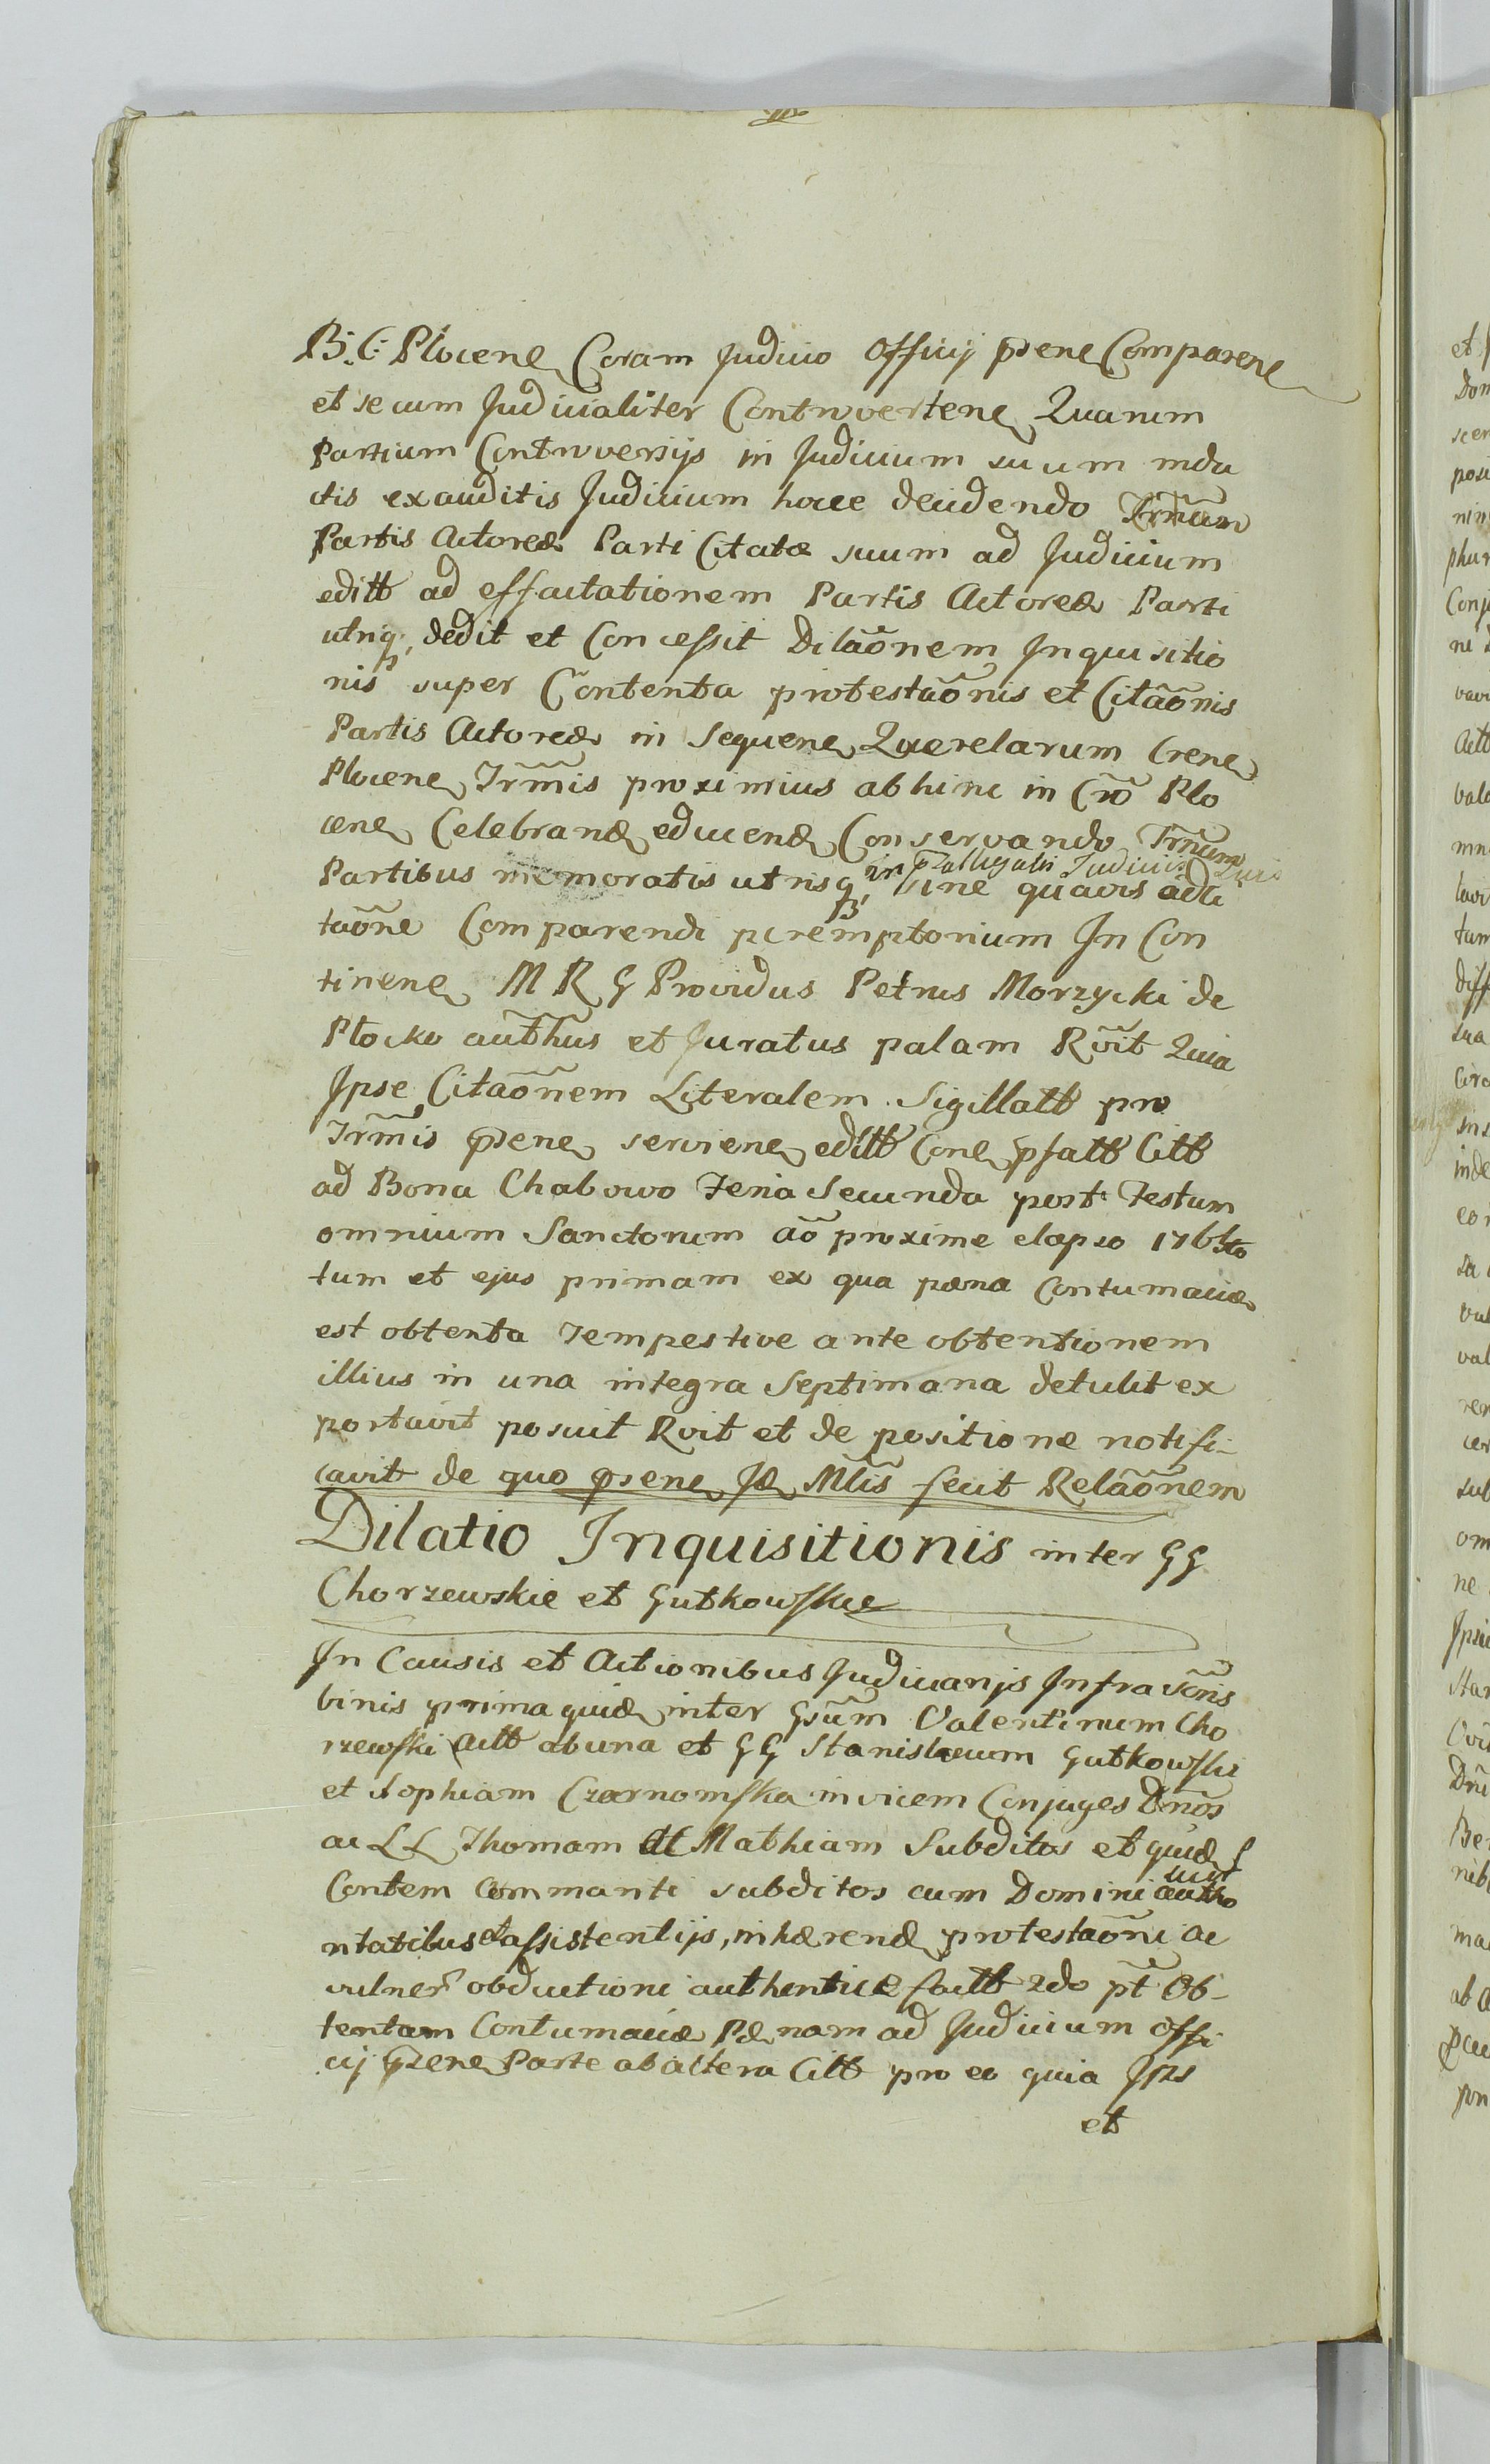 B. C. Plocene Coram Judicio Officij p̃sene Comparene
et secum Judicialiter Controvertene Quarum
Partium Controversijs in Judicium suum indu
ctis exauditis Judicium hocce decidendo Trm̃um
Partis Actoreæ Parti Citatæ suum ad Judicium
editt ad effactationem Partis Actoreæ Parti
utriq; dedit et Concessit Dilaõnem Inquisitio
nis super Contenta protestaõnis et Citaõnis
Partis Actoreæ in Sequene Querelarum Crene
Plocene Trm̃is proximius abhinc in Crõ Plo
cene Celebrand educend Conservando Trm̃um
Partibus memoratis utrisq; in Judicio sine quavis adci
taõne Comparendi peremptorium In Con
tinene M R G Providus Petrus Morzycki de
Plocko autħus et Juratus palam Rõit Quia
Ipse Citaõnem Literalem Sigillatt pro
Trm̃is p̃sene serviene editt Cone p̃fatt Citt
ad Bona Chabowo Feria Secunda post Festum
omnium Sanctorum aõ proxime elapso
tum et ejus primam ex qua pæna Contumaciæ
est obtenta Tempestive ante obtentionem
illius in una integra Septimana detulit ex
portavit posuit Roit et de positione notifi-
cavit de quo p̃sene Mlis fecit Relaõnem
Dilatio Inquisitionis inter GG
Chorzewskie et Gutkowskie
In Causis et Actionibus Judiciarijs Infra Scr̃is
binis prima quid inter Gsũm Valentinum Cho
rzewski Actt ab una et GG Stanislaum Gutkowski
et Sophiam Czarnomska invicem Conjuges Dños
ac LL Thomam et Mathiam Subditos et quid
Contem Commanti subditos cum Domini autho
ritatibus et assistentijs, inhærend protestaõni ac
vulner obductioni authenticæ factt 2do pt Ob-
tentam Contumaciæ Pænam ad Judicium Offi
cij p̃sene Parte ab altera Citt pro eo quia Ipsi
et